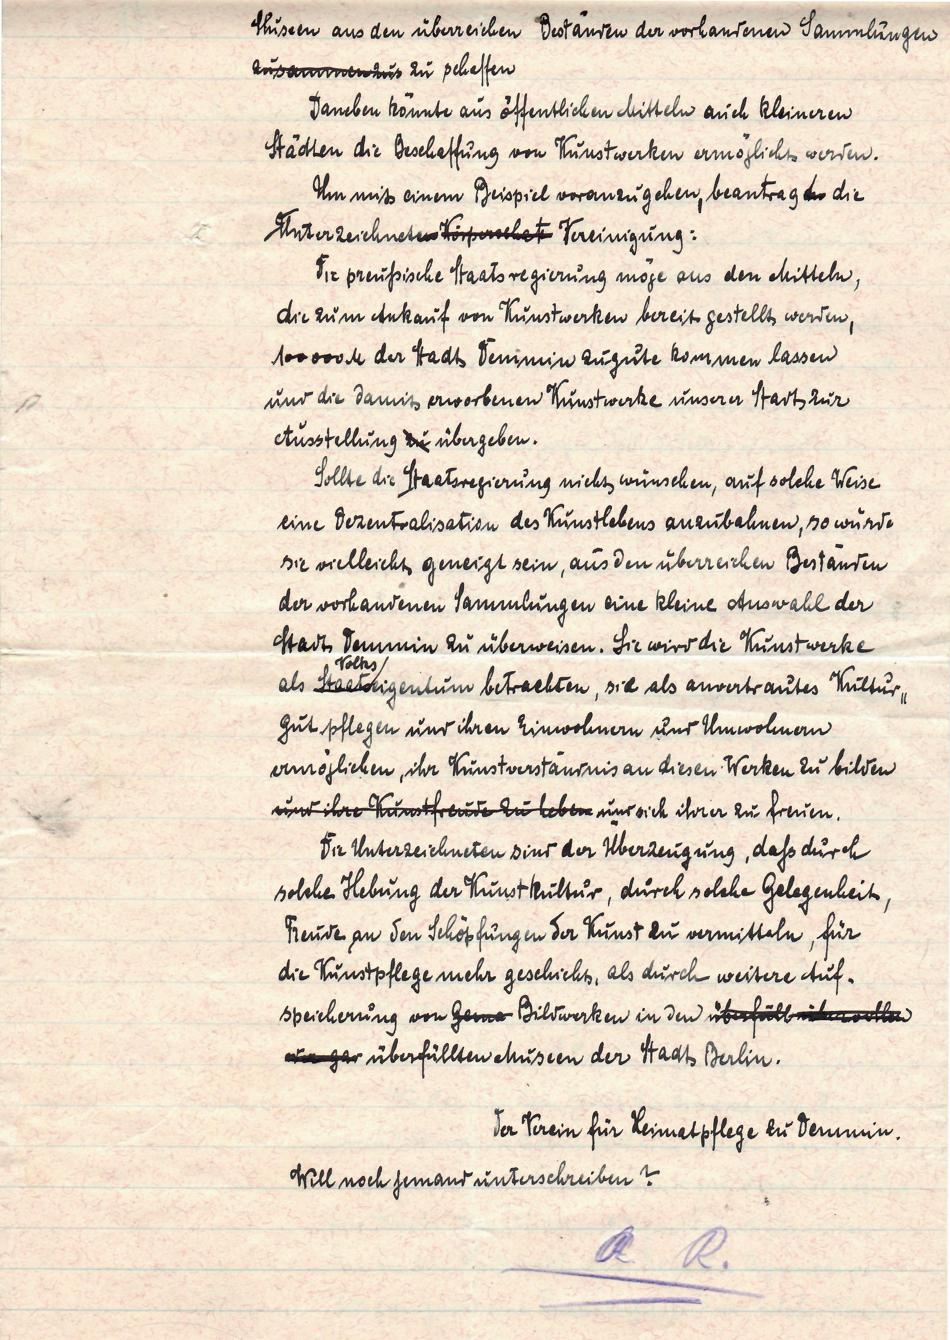 Museen aus den überreichen Beständen der vorhandenen Sammlungen
zusammenzus zu schaffen
Daneben könnte aus öffentlichen Mitteln auch kleineren
Städten die Beschaffung von Kunstwerken ermöglicht werden.
Um mit einem Beispiel voranzugehen, beantragt die
Unterzeichneten Körperschaft Vereinigung:
Die preußische Staatsregierung möge aus den Mitteln,
die zum Ankauf von Kunstwerken bereit gestellt werden,
100000 M der Stadt Demmin zugute kommen lassen
und die damit erworbenen Kunstwerke unserer Stadt zur
Ausstellung zu übergeben.
Sollte die Staatsregierung nicht wünschen, auf solche Weise
eine Dezentralisation des Kunstlebens anzubahnen, so würde
sie vielleicht geneigt sein, aus den überreichen Beständen
der vorhandenen Sammlungen eine kleine Auswahl der
Stadt Demmin zu überweisen. Sie wird die Kunstwerke
Volks/
als Staatseigentum betrachten, sie als anvertrautes Kultur„
gut pflegen und ihren Einwohnern und Umwohnern
ermöglichen, ihr Kunstverständnis an diesen Werken zu bilden
und ihre Kunstfreude zu leben und sich ihrer zu freuen.
Die Unterzeichneten sind der Überzeugung, daß durch
solche Hebung der Kunstkultur, durch solche Gelegenheit,
Freude an den Schöpfungen der Kunst zu vermitteln, für
die Kunstpflege mehr geschieht, als durch weitere Auf-
speicherung von Bildwerken in den überfüll übervollen
überfüllten Museen der Stadt Berlin.
Der Verein für Heimatpflege zu Demmin.
Will noch jemand unterschreiben?
R.